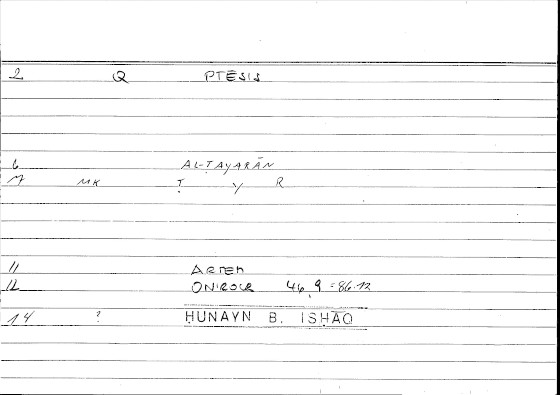 2 Q PTĒSIS
6 AL-ṬAYARĀN
7 MK Ṭ Y R
11 ARTEM
12 ONIROCR 46,9 = 86.12
14 ? ḤUNAYN B. ISḤĀQ